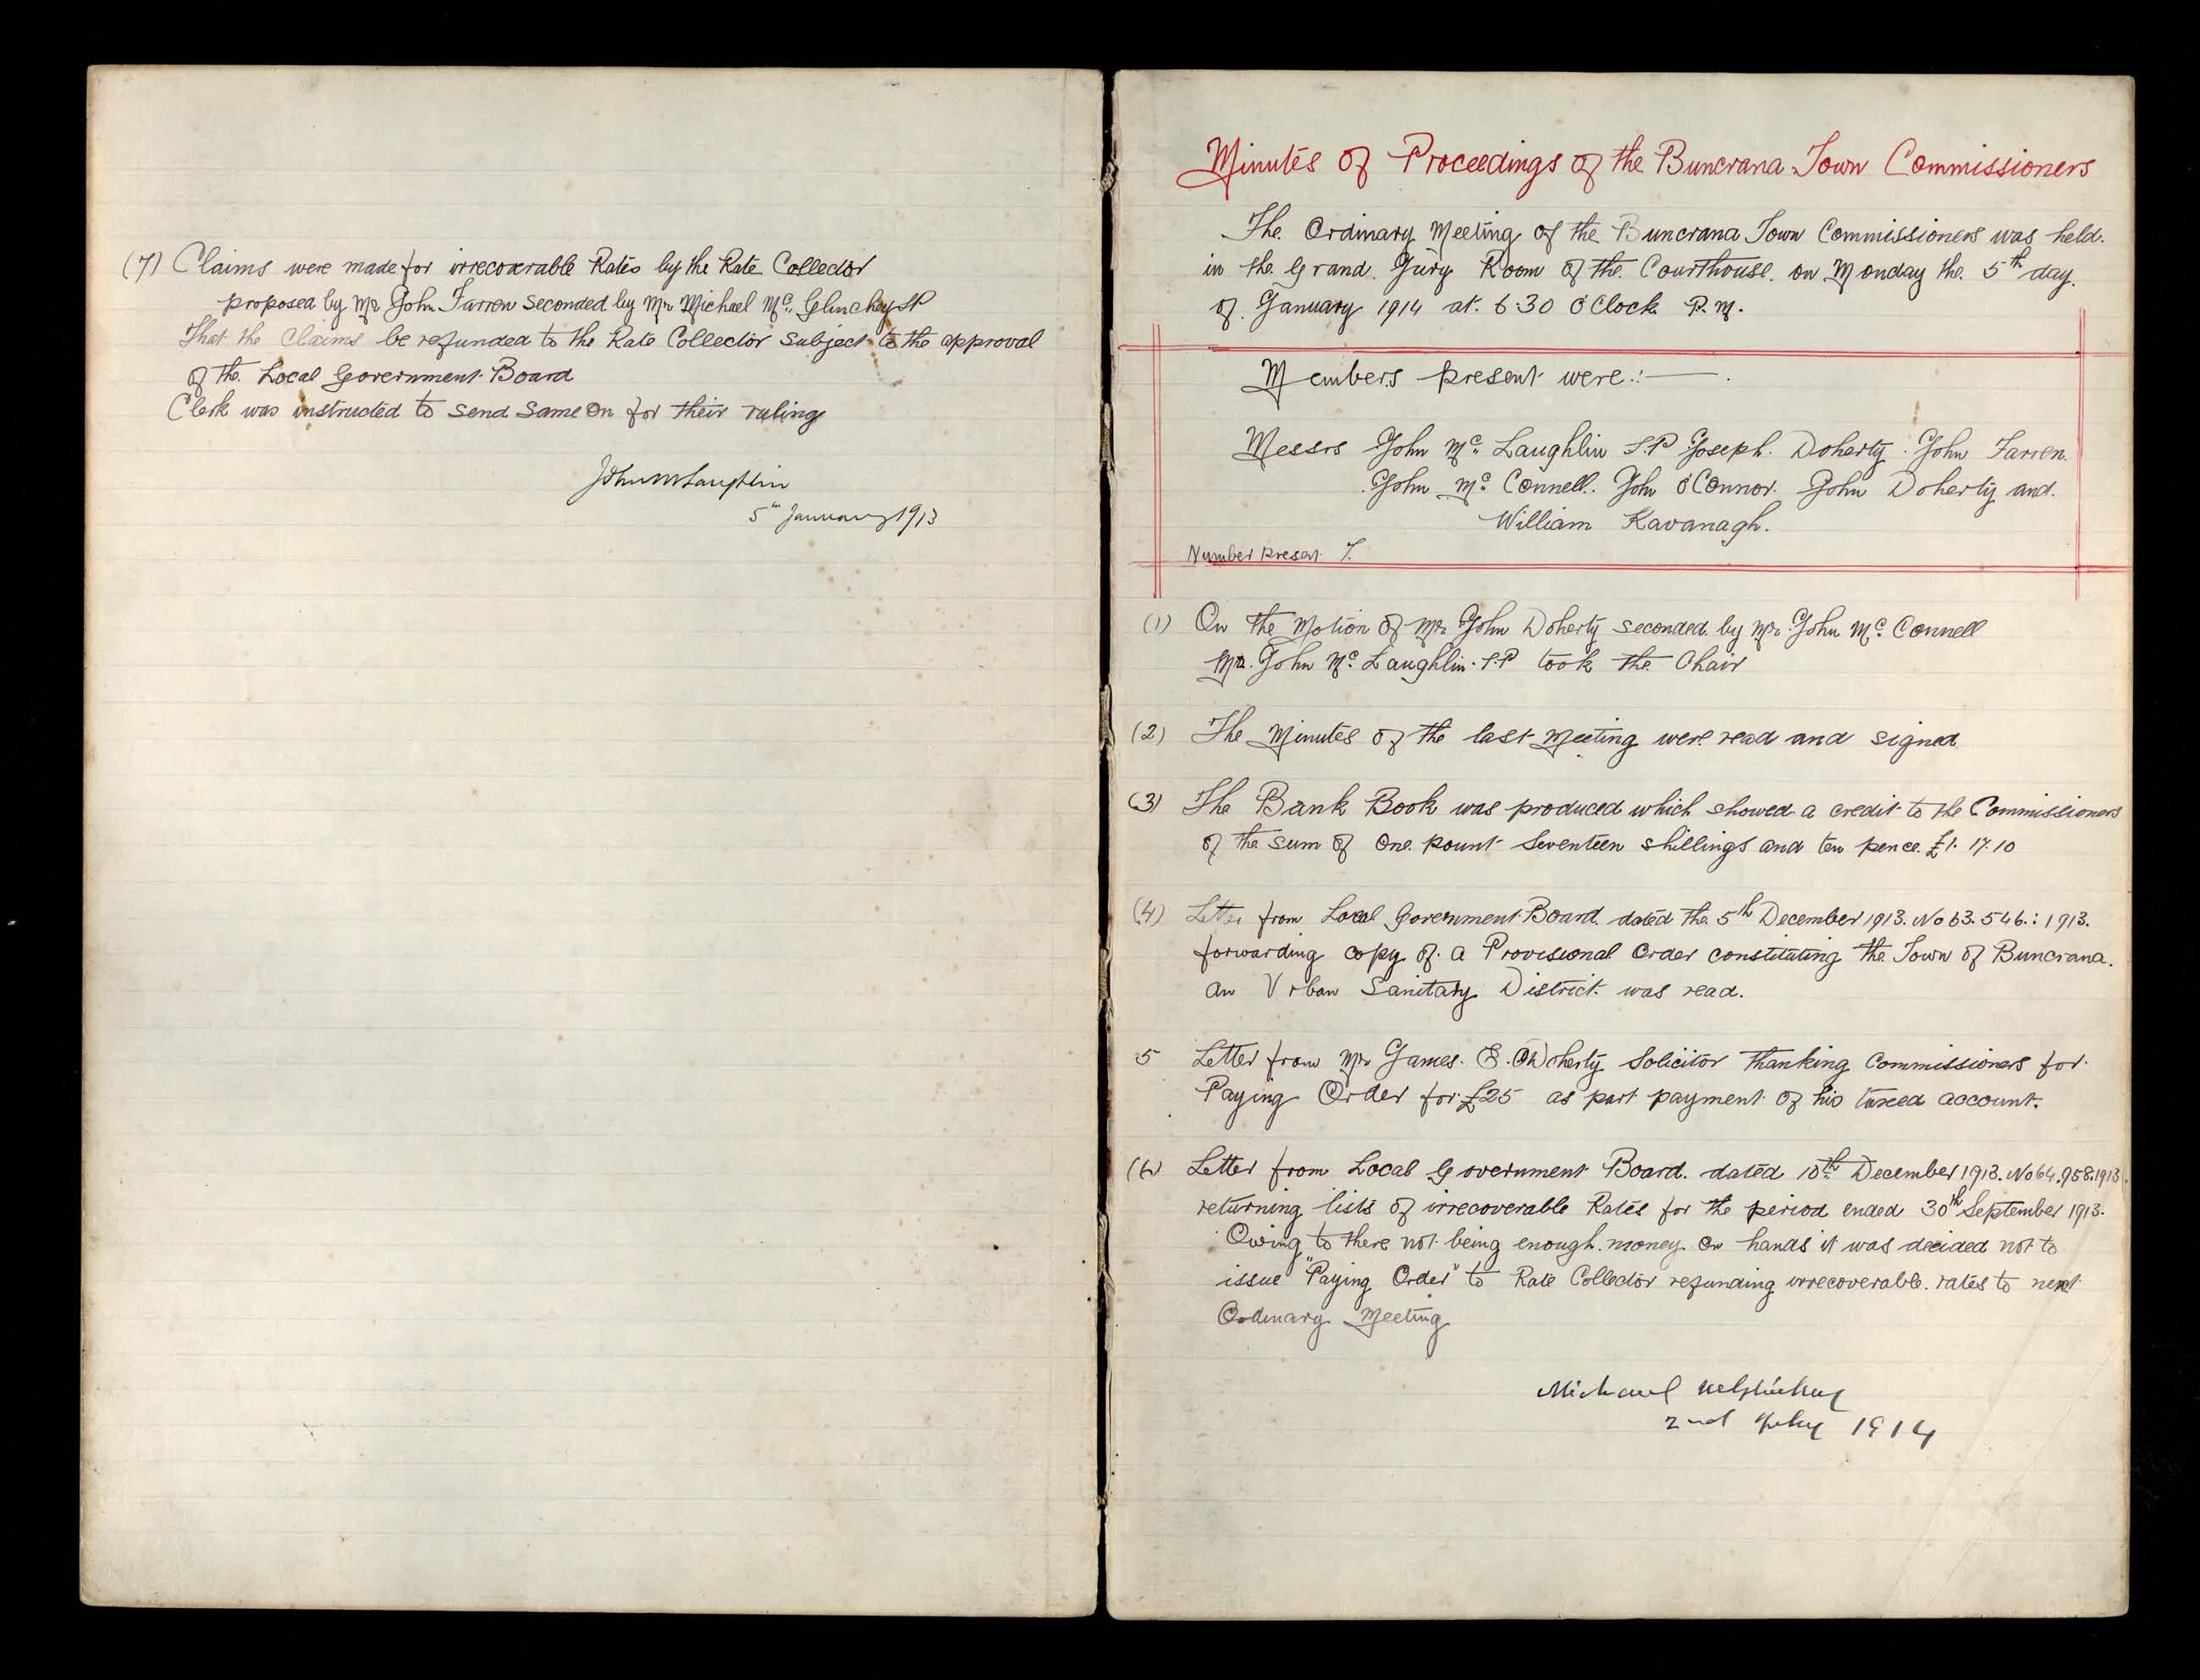 (7) Claims were made for irrecoverable Rates by the Rate Collector
proposed by Mr John Farren seconded by Mr Michael Mc. Glinchey JP
That the Claims be refunded to the Rate Collector subject to the approval
of the Local Government Board
Clerk was instructed to send same on for their ruling
John McLaughlin
5th January 1913
Minutes of Proceedings of the Buncrana Town Commissioners
The Ordinary Meeting of the Buncrana Town Commissioners was held.
in the Grand Jury Room of the Courthouse on Monday the 5th day.
of January 1914 at 6.30 O'Clock P.M.
Members present were:—.
Messrs John Mc. Laughlin J.P Joseph Doherty John Farren.
John Mc. Connell. John O'Connor. John Doherty and.
William Kavanagh.
Number Present 7.
(1) On the Motion of Mr John Doherty seconded by Mr John Mc. Connell
Mr. John Mc. Laughlin. J.P took the Chair
(2) The Minutes of the last Meeting were read and signed
(3) The Bank Book was produced which showed a credit to the Commissioners
of the sum of One pount Seventeen shillings and ten pence. £1. 17. 10
(4) Letter from Local Government Board dated the 5th December 1913. No 63.546.: 1913.
forwarding copy of a Provisional Order constituting the Town of Buncrana.
an Urban Sanitary District was read.
5 Letter from Mr James. E. O'Doherty Solicitor Thanking Commissioners for
Paying Order for £25 as part payment of his taxed account.
(6) Letter from Local Government Board. dated 10th December 1913. No 64.958.1913.
returning lists of irrecoverable Rates for the period ended 30th September 1913.
Owing to there not being enough money on hands it was decided not to
issue "Paying Order" to Rate Collector refunding irrecoverable rates to next
Ordinary Meeting
Michael McGlinchey
2nd Feby 1914